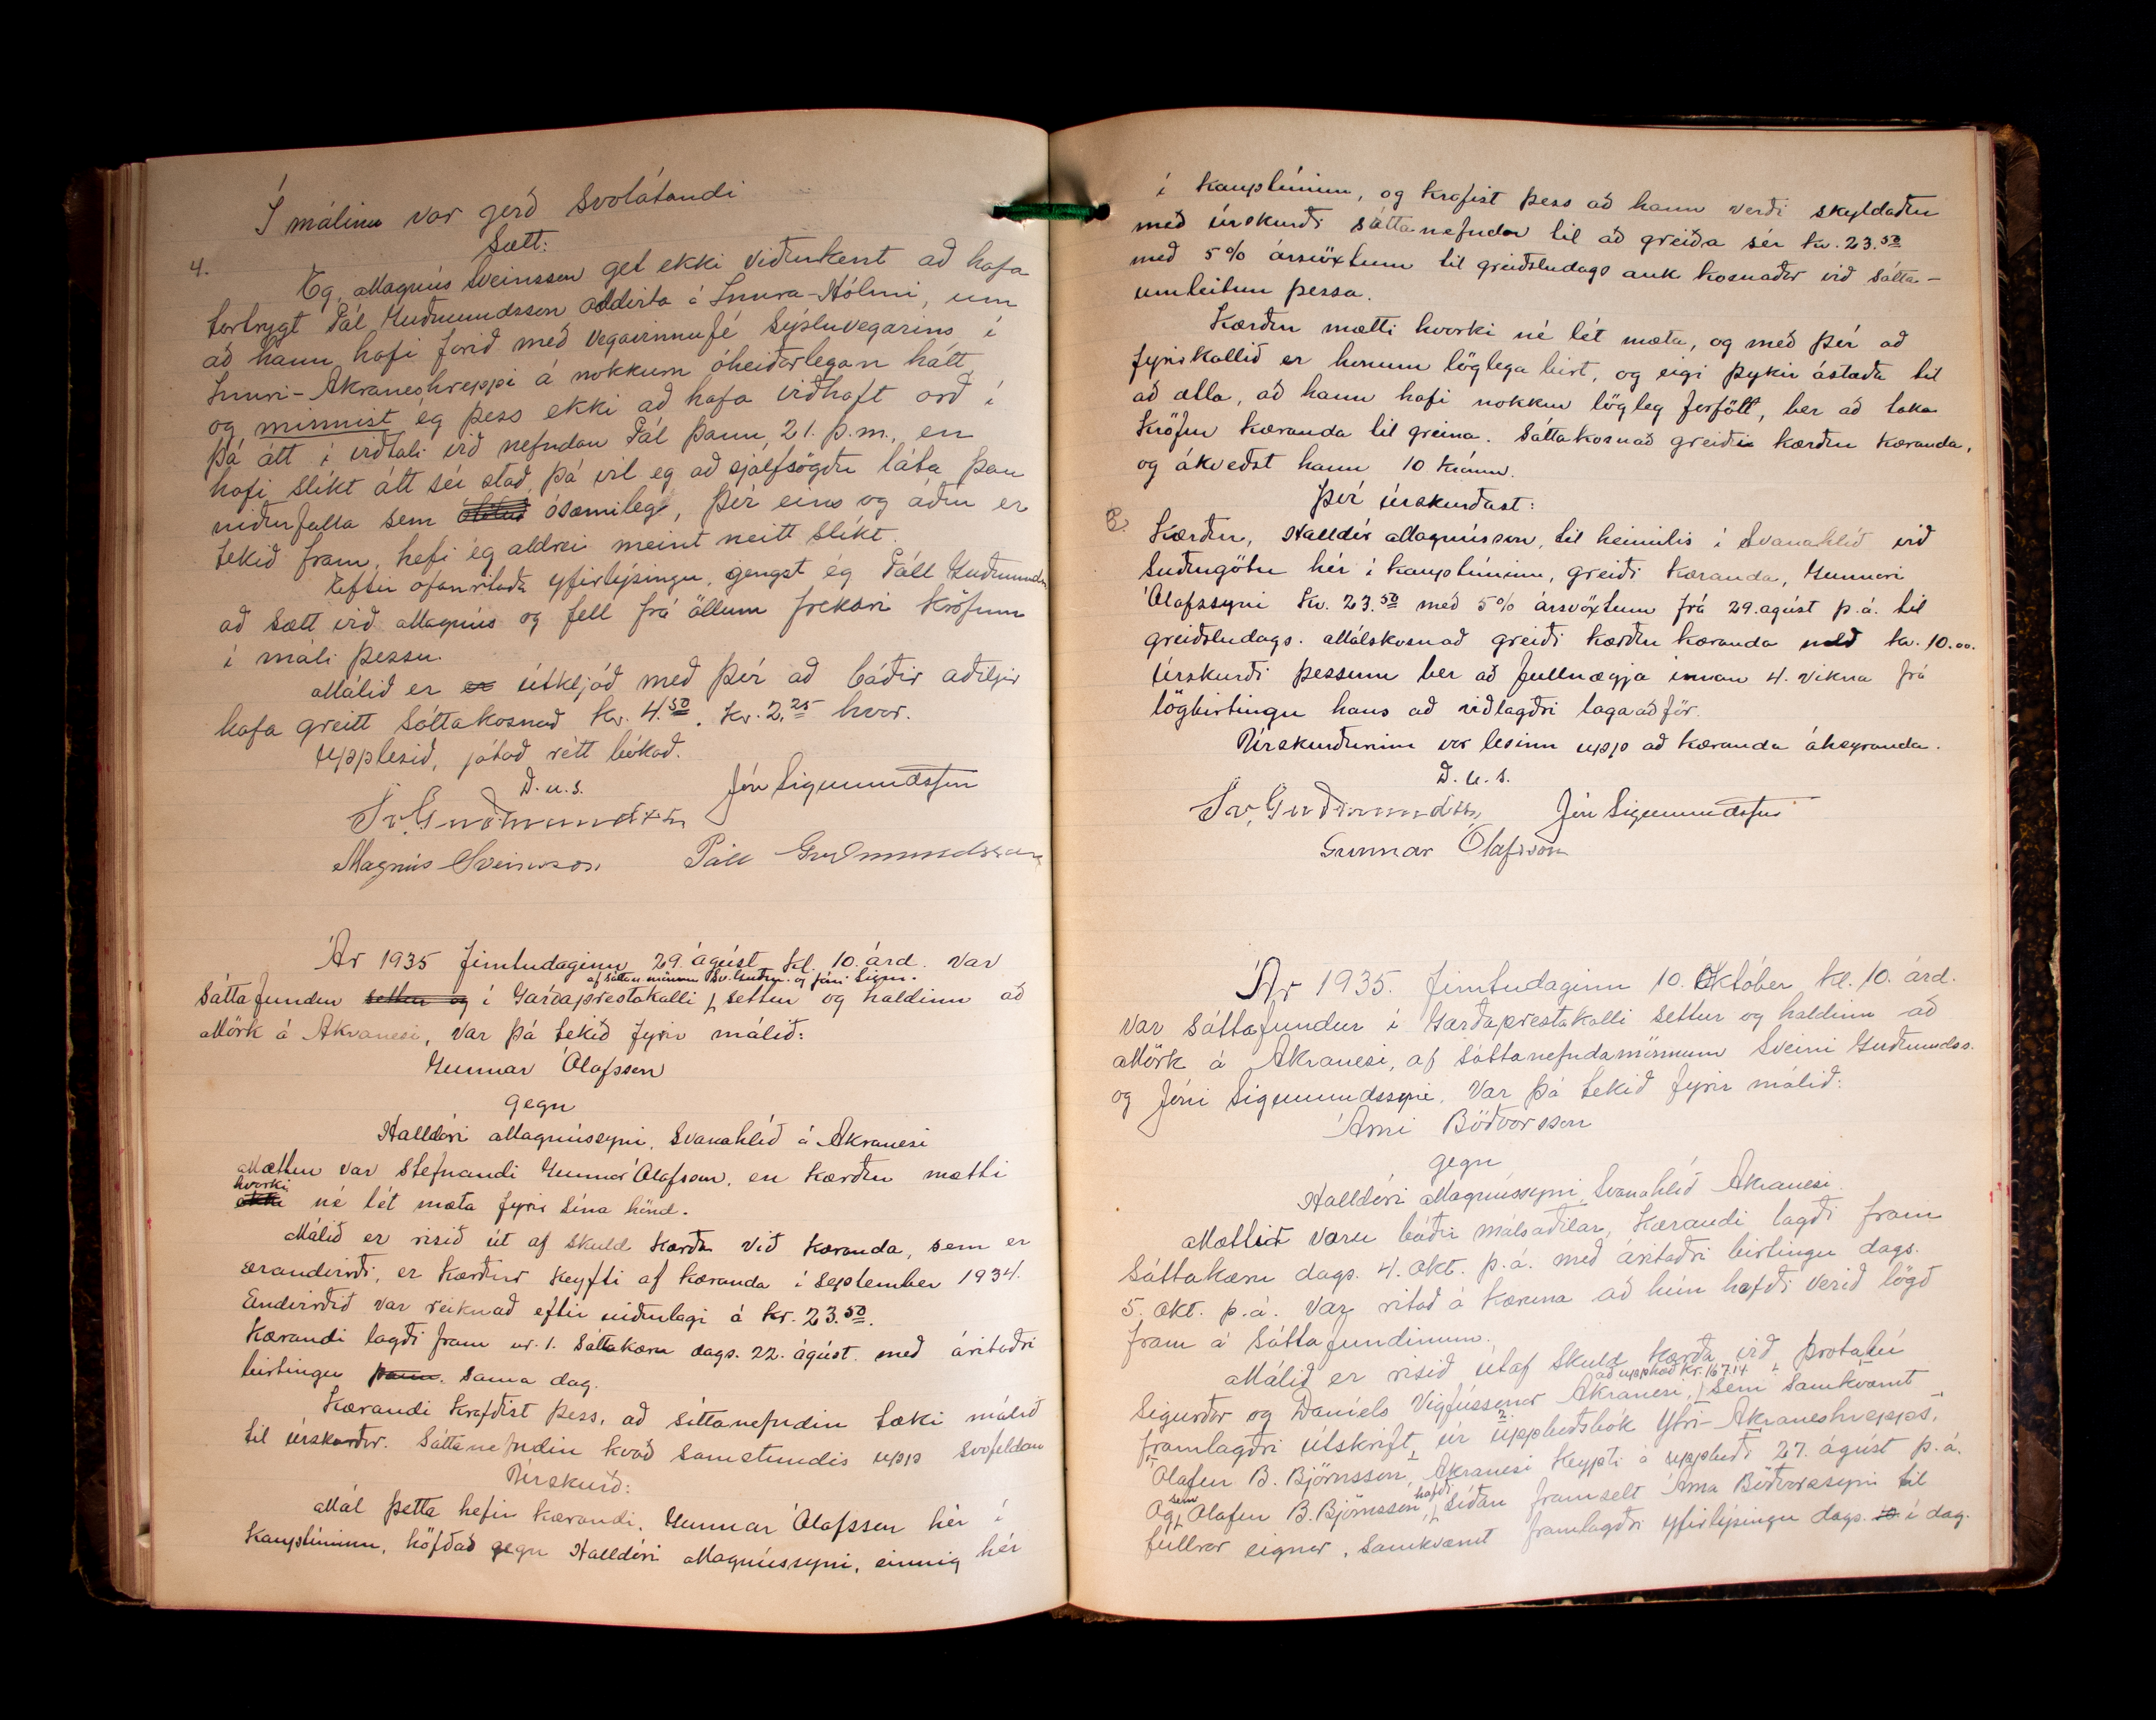 Í málinu var gerð svolátandi
Sætt:
4.
Eg, Magnús Sveinsson get ekki viðurkent að hafa
tortrygt Pál Guðmundsson oddvita á Innra-Hólmi, um
að hann hafi farið með vegavinnufé sýsluvegarins í
Innri-Akraneshreppi á nokkurn óheiðarlegan hátt,
og minnist ég þess ekki að hafa viðhaft orð í
þá átt í viðtali við nefndan Pál þann 21. þ.m., en
hafi slíkt átt sér stað, þá vil eg að sjálfsögðu láta þau
niðurfalla sem ósæmileg, því eins og áður er
tekið fram, hefi ég aldrei meint neitt slíkt.
Eftir ofanritaða yfirlýsingu, gengst ég Páll Guðmundss
að sætt við Magnús og fell frá öllum frekari kröfum
í máli þessu.
Málið er útkljáð með því að báðir aðiljar
hafa greitt sáttakosnað kr. 4.50. kr. 2.25 hvor.
Upplesið, játað rétt bókað.
D.u.s.
Sv. Guðmundsson Jón Sigmundsson
Magnús Sveinsson Páll Guðmundsson
Ár 1935 fimtudaginn 29. ágúst kl. 10. árd. var
af sáttan mönnum Sv. Guðm. og Jóni Sigm.
Sáttafundur settur og í Garðaprestakalli settur og haldinn að
Mörk á Akranesi, var þá tekið fyrir málið:
Gunnar Ólafsson
gegn
Halldóri Magnússyni, Svanahlíð á Akranesi
Mættur var stefnandi Gunnar Ólafsson, en kærður mætti
hvorki
ekki né lét mæta fyrir sína hönd.
Málið er risið út af skuld kærða við kæranda, sem er
andvirði, er kærður keyfti af kæranda í september 1934.
Andvirðið var reiknað eftir niðurlagi á kr. 23.50.
Kærandi lagði fram nr. 1. Sáttakæru dags. 22. ágúst. með áritaðri
birtingu þann. sama dag.
Kærandi krafðist þess, að sáttanefndin tæki málið
til úrskurðar. Sáttanefndin kvað samstundis upp svofeldan
Úrskurð:
Mál þetta hefir kærandi, Gunnar Ólafsson hér í
kauptúninu, höfðað gegn Halldóri Magnússyni, einnig hér
í kauptúninu, og krafist þess að hann verði skyldaður
með úrskurði sáttanefndar til að greiða sér kr. 23.50
með 5% ársvöxtum til greiðsludags auk kosnaðar við sátta-
umleitun þessa.
Kærður mætti hvorki né lét mæta, og með því að
fyrirkallið er honum löglega birt, og eigi þykir ástæða til
að ætla, að hann hafi nokkur lögleg forföll, ber að taka
kröfur kæranda til greina. Sáttakosnað greiðir kærður kæranda,
og ákveðst hann 10 krónur.
Því úrskurðast:
Kærður, Halldór Magnússon, til heimilis í Svanahlíð við
Suðurgötu hér í kauptúninu, greiði kæranda, Gunnari
Ólafssyni kr. 23.50 með 5% ársvöxtum frá 29. ágúst þ.á. til
greiðsludags. Málskosnað greiði kærður kæranda með kr. 10.00.
Úrskurði þessum ber að fullnægja innan 4. vikna frá
lögbirtingu hans að viðlagðri lagaaðför.
Úrskurðurinn var lesinn upp að kæranda áheyranda.
D.u.s.
Sv. Guðmundsson Jón Sigmundsson
Gunnar Ólafsson
Ár 1935. fimtudaginn 10. Október kl. 10. árd.
var sáttafundur í Garðaprestakalli settur og haldinn að
Mörk á Akranesi, af sáttanefndamönnum Sveini Guðmundss.
og Jóni Sigmundssyni. Var þá tekið fyrir málið:
Árni Böðvarsson
gegn
Halldóri Magnússyni, Svanahlíð Akranesi.
Mættir voru báðir málsaðilar, Kærandi lagði fram
Sáttakæru dags. 4. okt. þ.á. með áritaðri birtingu dags.
5. okt. þ.á. Var ritað á kæruna að hún hafði verið lögð
fram á sáttafundinum.
Málið er risið útaf skuld kærða við þrotabú
að upphæð kr. 167.14
Sigurðar og Daníels Vigfússonar Akranesi, sem samkvæmt
framlagðri útskrift úr uppboðsbók Ytri-Akraneshrepps,
Ólafur B. Björnsson, Akranesi keypti á uppboði 27. ágúst þ.á.
sem hafði
Og Ólafur B. Björnsson, síðan framselt Árna Böðvarssyni til
fullrar eignar, samkvæmt framlagðri yfirlýsingu dags. í dag.